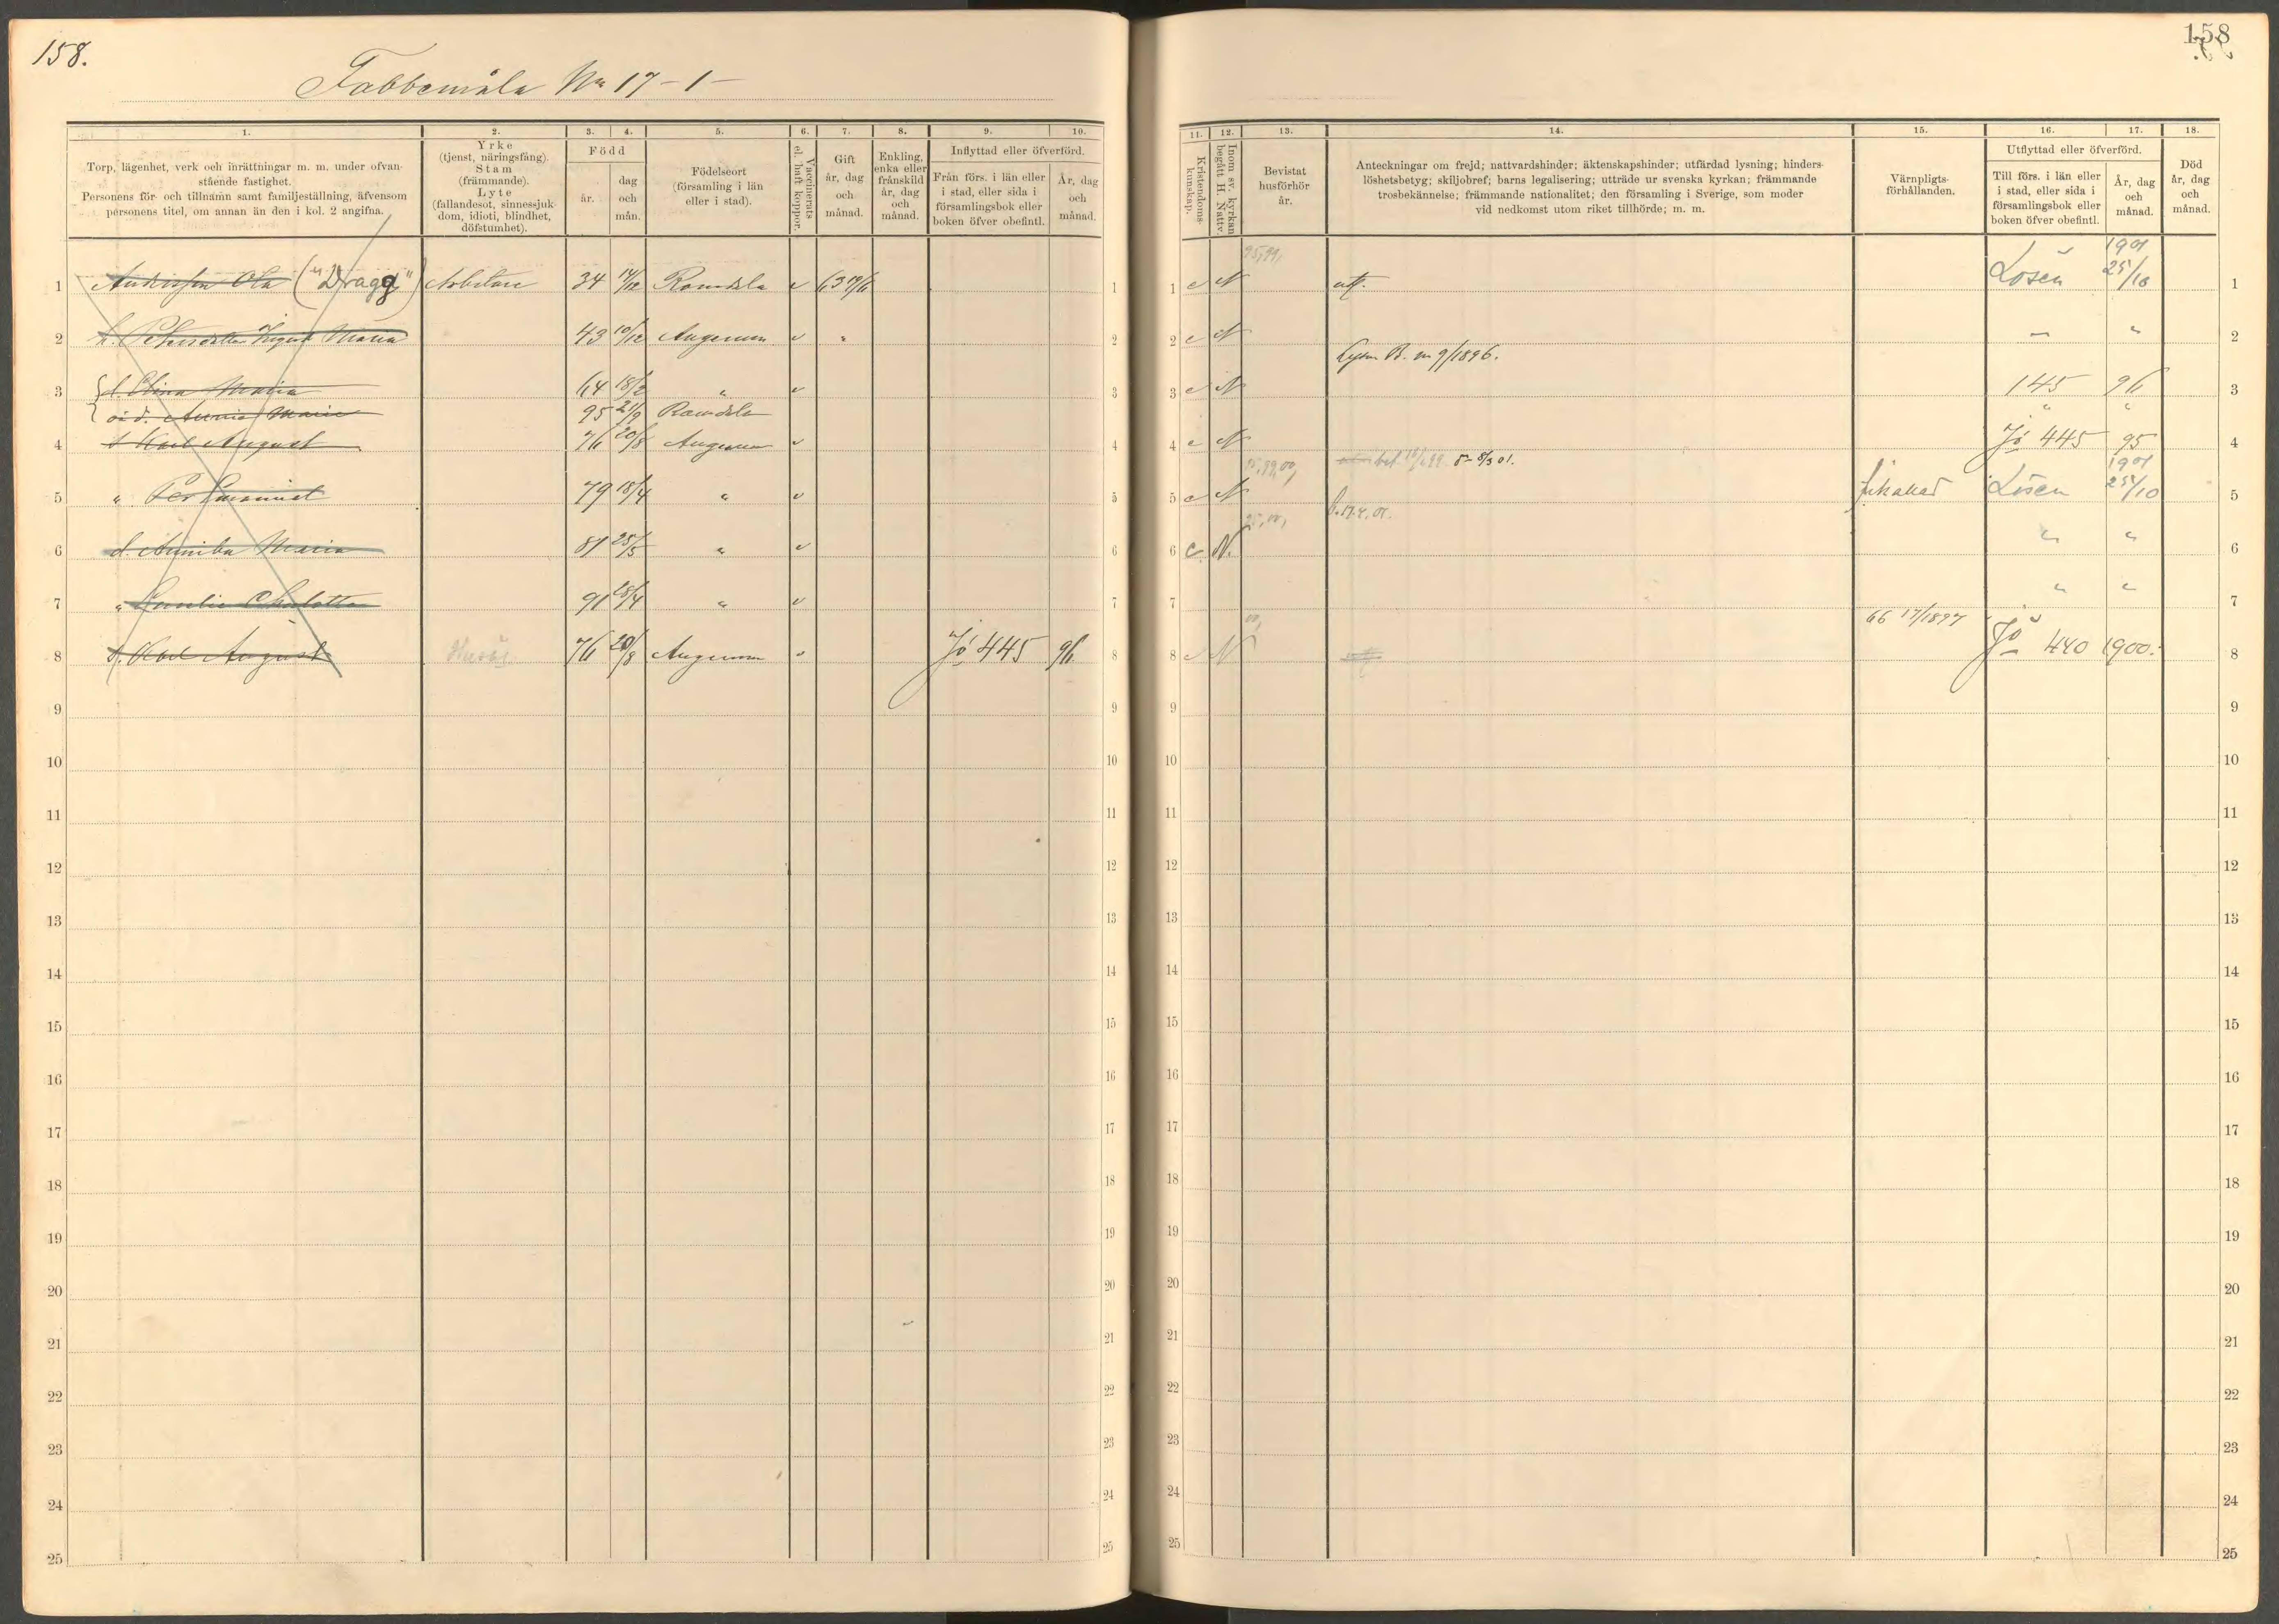 158.
Fabbemåla No 17-1-
1. 2. 3. 4. 5. 6. 7. 8. 9. 10.
Torp, lägenhet, verk och inrättningar m. m. under ofvan-
stående fastighet.
Personens för- och tillnamn samt familjeställning, äfvensom
personens titel, om annan än den i kol. 2 angifna.
Yrke
(tjenst, näringsfång).
Stam
(främmande).
Lyte
(fallandesot, sinnessjuk-
dom, idioti, blindhet,
döfstumhet).
Född
år.
dag
och
mån.
Födelseort
(församling i län
eller i stad).
Vaccinerats
el. haft koppor.
Gift
år, dag
och
månad.
Enkling,
enka eller
frånskild
år, dag
och
månad.
Inflyttad eller öfverförd.
Från förs. i län eller
i stad, eller sida i
församlingsbok eller
boken öfver obefintl.
År, dag
och
månad.
1 Andersson Ola ("Dragg") Arbetare 34 Ramdala v 63
2 h. Petersdotter Ingrid Maria 43 19/12 Augerum v "
3 d. Elina Maria 64 18/2 " v
oä d. Annie Maria 95 21/9 Ramdala
4 s Karl August 76 20/8 Augerum v
5 " Per 79 18/4 " v
6 d. Annika Maria 81 25/5 " v
7 " Charlotta 91 " v
8 s. Karl August 76 20/8 Augerum v Jö 445 96
9
10
11
12
13
14
15
16
17
18
19
20
21
22
23
24
25
158
11. 12. 13. 14. 15. 16. 17. 18.
Kristendoms-
kunskap.
Inom sv. kyrkan
begått H. Nattv.
Bevistat
husförhör
år.
Anteckningar om frejd; nattvardshinder; äktenskapshinder; utfärdad lysning; hinders-
löshetsbetyg; skiljobref; barns legalisering; utträde ur svenska kyrkan; främmande
trosbekännelse; främmande nationalitet; den församling i Sverige, som moder
vid nedkomst utom riket tillhörde; m. m.
Värnpligts-
förhållanden.
Utflyttad eller öfverförd.
Till förs. i län eller
i stad, eller sida i
församlingsbok eller
boken öfver obefintl.
År, dag
och
månad.
Död
år, dag
och
månad.
1 c N 95,99, att. Lösen 1901 25/10 1
2 c N " 2
Lysn B. 9/1896.
3 c N 145 96 3
" "
4 c N Jö 445 95 4
8/3 01.
5 c N 99,00, Lösen 1901 25/10 5
6 c. N. " " 6
7 " " 7
66 17/1897
8 c N 00, Jö 440 1900. 8
9 9
10 10
11 11
12 12
13 13
14 14
15 15
16 16
17 17
18 18
19 19
20 20
21 21
22 22
23 23
24 24
25 25